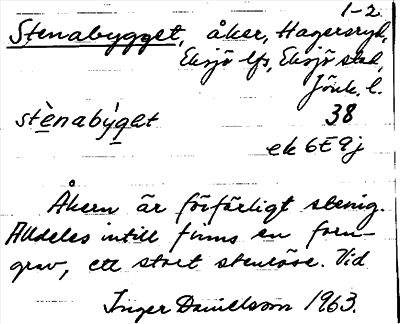 1-2
Stenabygget, åker, Hagersryd,
Eksjö lfs, Eksjö stad,
Jönk. l.
stènabýget 38
ek 6E9j
Åkern är förfärligt stenig.
Alldeles intill finns en forn-
grav, ett stort stenröse. Vid
Inger Danielsson 1963.